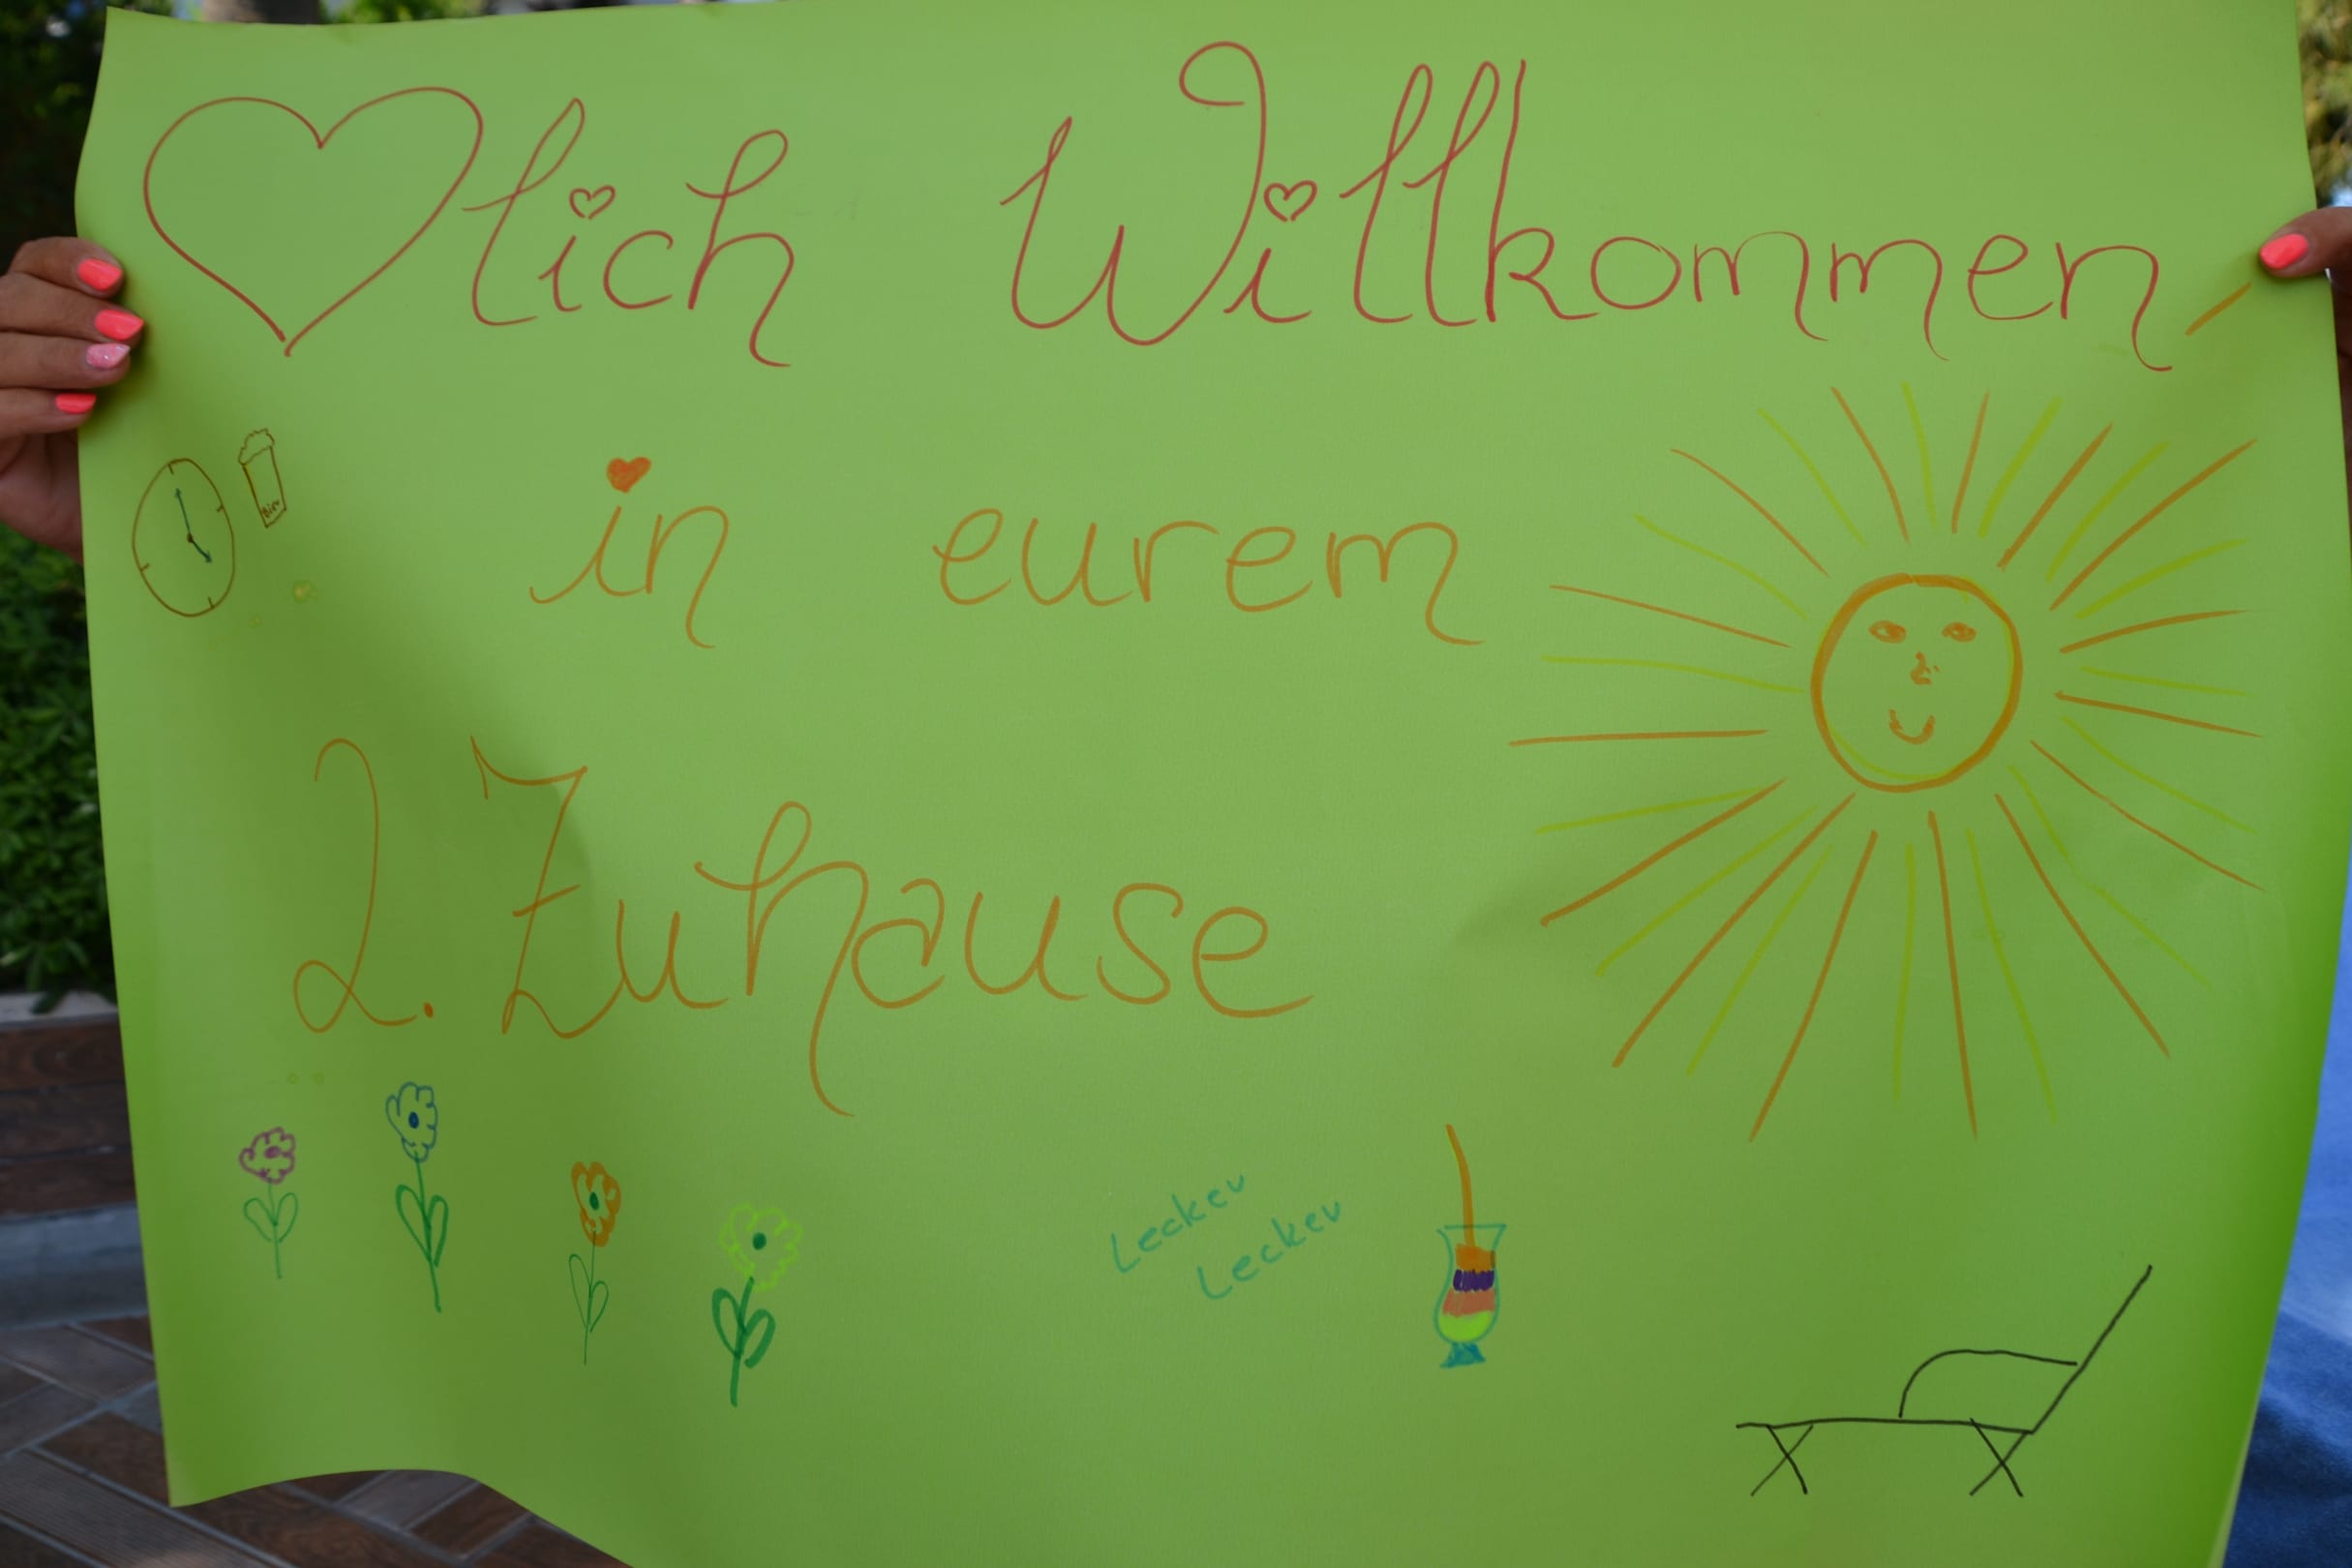 ♥lich Willkommen
Bier
in eurem
2. Zuhause
Lecker
Lecker